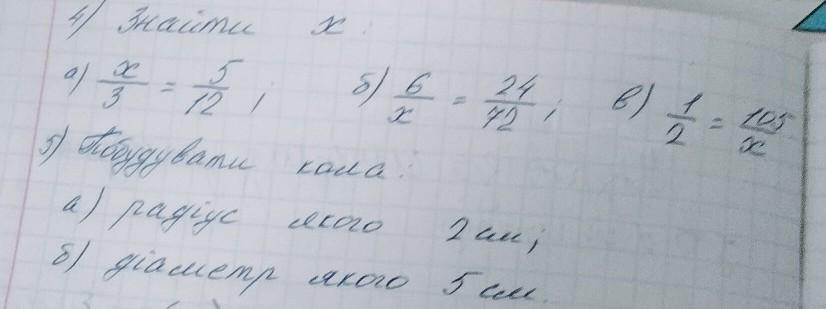 4) Знайти х:
а) x/3 = 5/12; б) 6/x = 24/72; в) 1/2 = 105/x
5) Побудувати кола:
а) радіус якого 2 см;
б) діаметр якого 5 см.